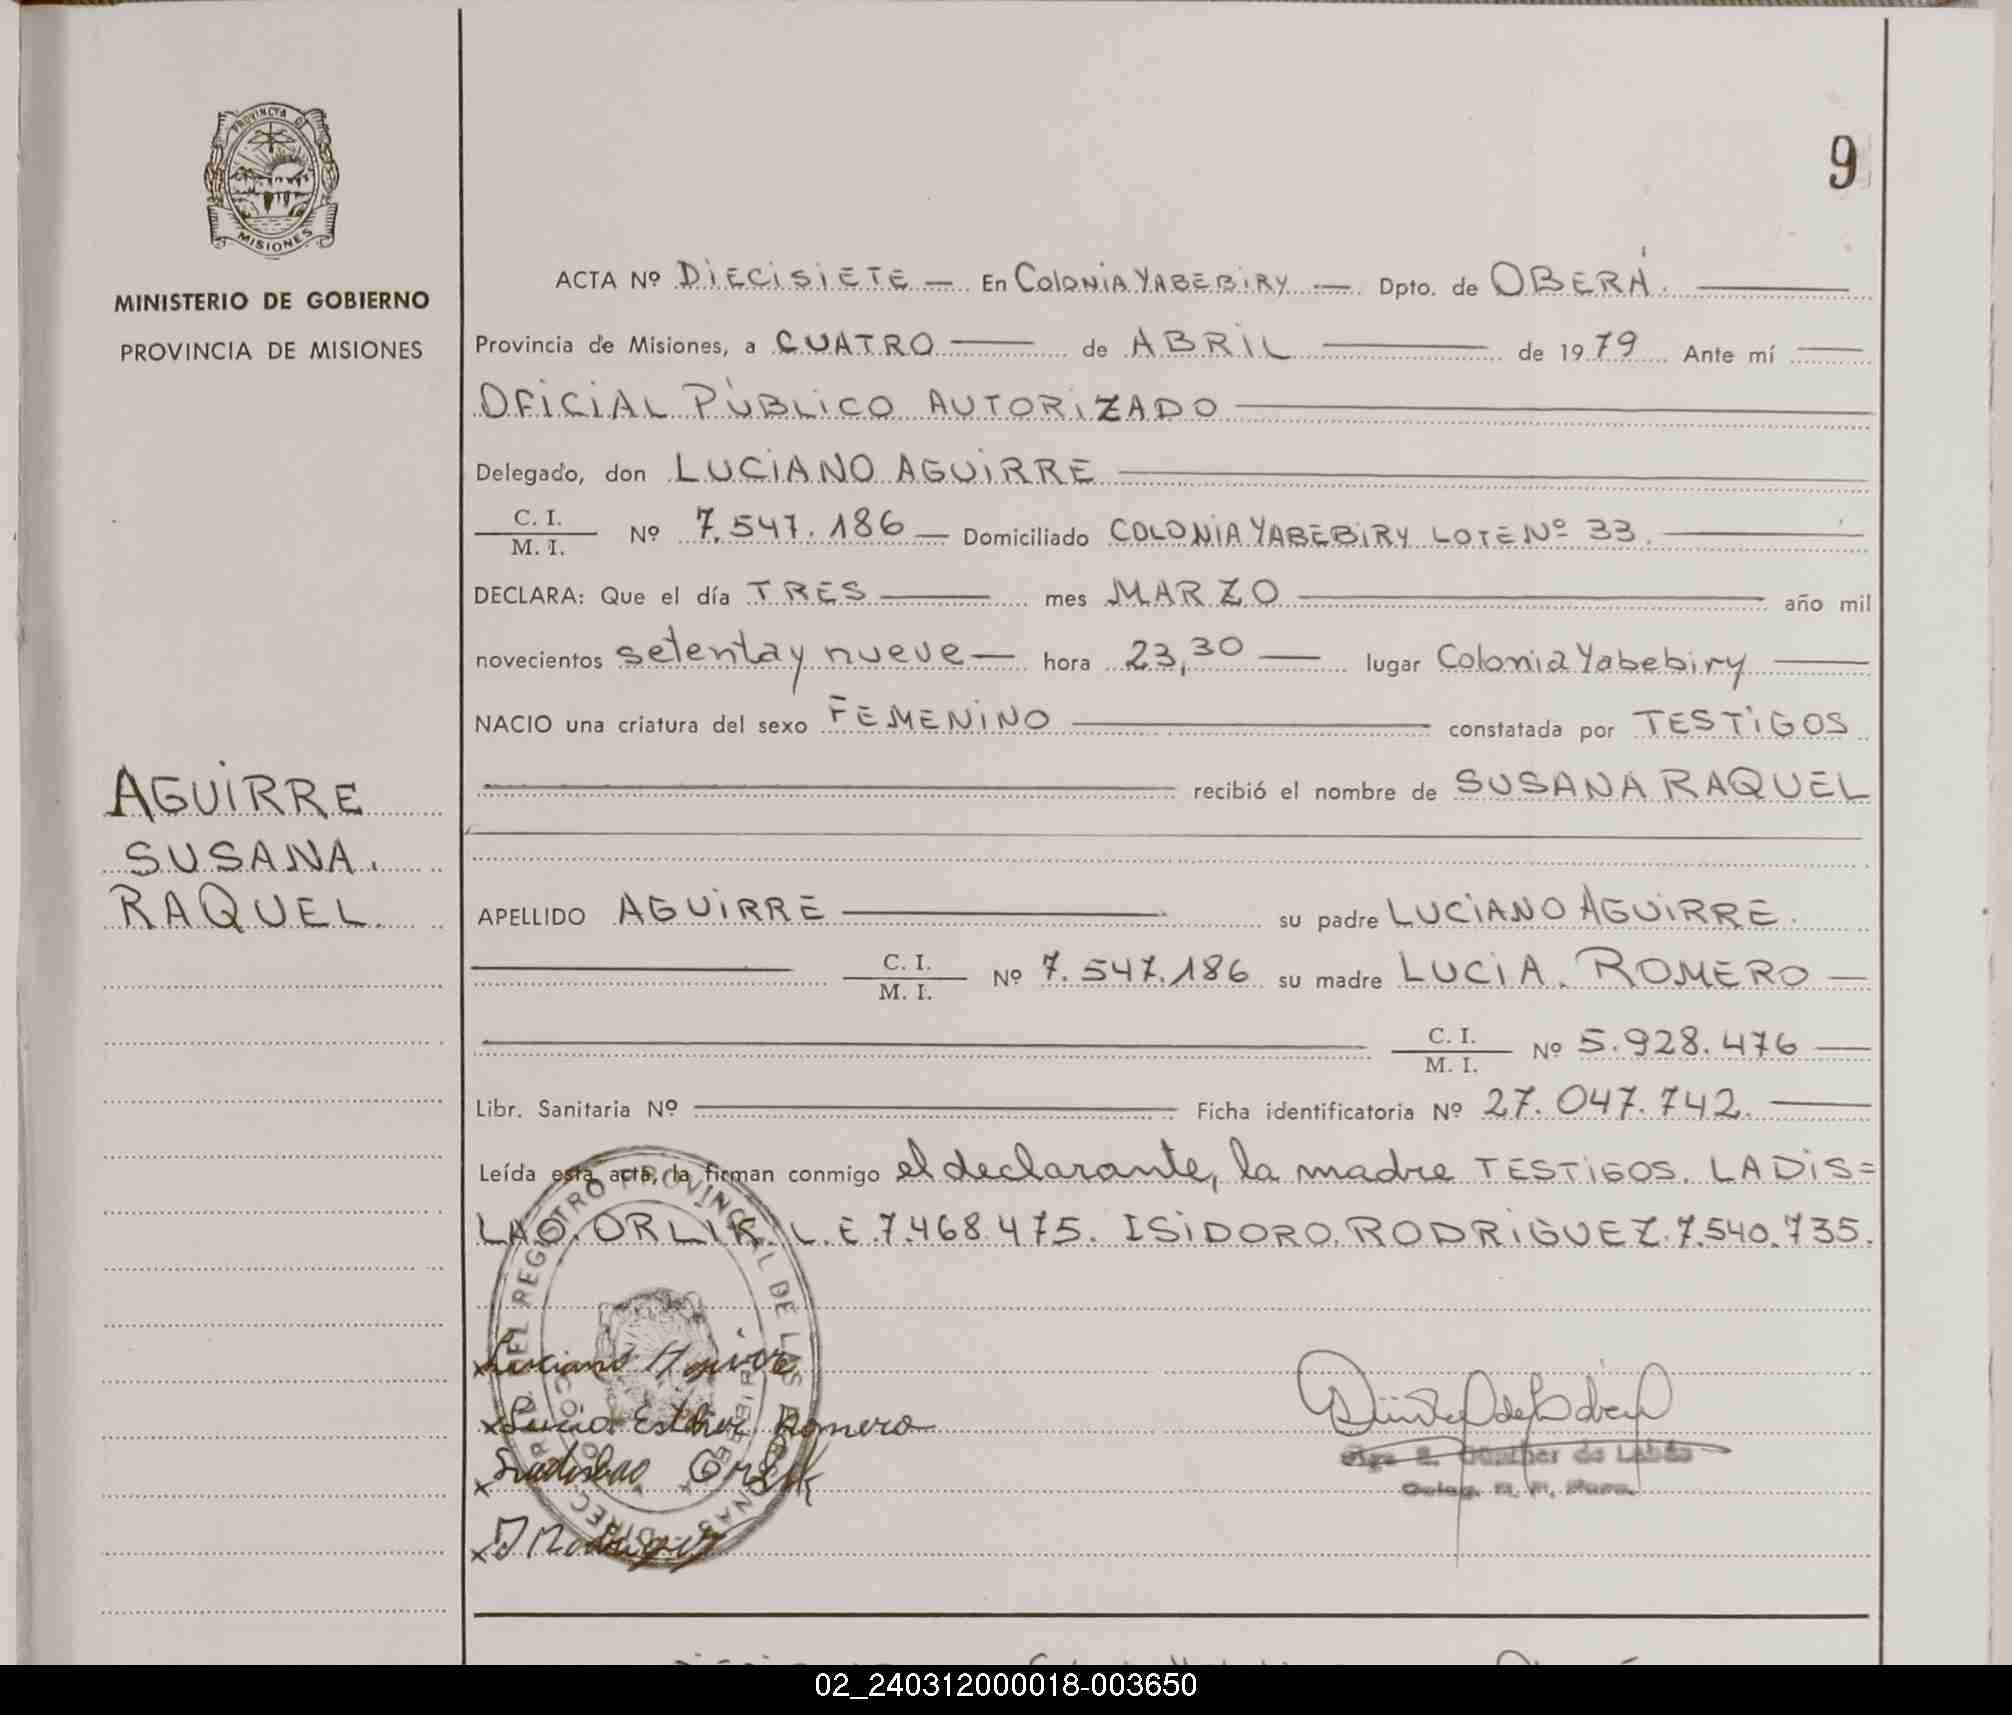 PROVINCIA DE
MISIONES
MINISTERIO DE GOBIERNO
PROVINCIA DE MISIONES
AGUIRRE
SUSANA.
RAQUEL.
9
ACTA Nº DIECISIETE — En Colonia YABEBIRY — Dpto. de OBERÁ.
Provincia de Misiones, a CUATRO de ABRIL de 1979 Ante mí
OFICIAL PÚBLICO AUTORIZADO
Delegado, don LUCIANO AGUIRRE
C. I.
M. I. Nº 7.547.186 — Domiciliado COLONIA YABEBIRY LOTE Nº 33.
DECLARA: Que el día TRES mes MARZO año mil
novecientos setenta y nueve — hora 23,30 — lugar Colonia Yabebiry
NACIO una criatura del sexo FEMENINO constatada por TESTIGOS
recibió el nombre de SUSANA RAQUEL
APELLIDO AGUIRRE su padre LUCIANO AGUIRRE.
C. I.
M. I. Nº 7.547.186 su madre LUCIA. ROMERO —
C. I.
M. I. Nº 5.928.476 —
Libr. Sanitaria Nº Ficha identificatoria Nº 27.047.742.
Leída esta acta, la firman conmigo el declarante, la madre TESTIGOS. LADIS=
LAO. ORLIK. L.E. 7.468.475. ISIDORO. RODRIGUEZ. 7.540.735.
REGISTRO PROVINCIAL DE LAS
x Luciano Aguirre
x Lucia Esther Romero
x Ladislao Orlik
x I Rodriguez
02_240312000018-003650